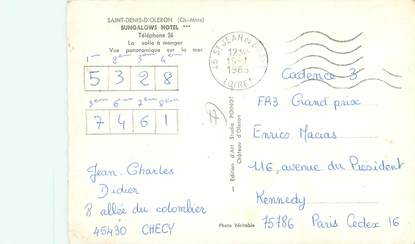 SAINT-DENIS-D'OLERON (Ch.-Mme)
BUNGALOWS HOTEL ***
Téléphone 26
La salle à manger
Vue panoramique sur la mer
1er 2ème 3ème 4ème
5 3 2 8
5ème 6ème 7ème 8ème
7 4 6 1
Jean-Charles
Didier
8 allée du colombier
45430 CHECY
45 ST JEAN
1983
LOIRET
Edition d'Art Studio POINOT
Château d'Oléron
Photo Véritable
Cadence 3
FR3 Grand prix
Enrico Macias
116, avenue du Président
Kennedy
75786 Paris Cedex 16